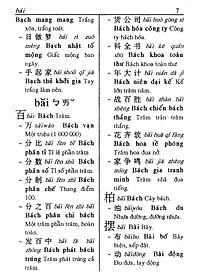 bái
7
Bạch mang mang Trắng
xóa, trắng toát.
- 日做梦 bái rì zuò
mèng Bạch nhật tố
mộng Giấc mộng ban
ngày.
- 手起家 bái shǒu qǐ jiā
Bạch thủ khởi gia Tay
trắng làm nên.
bǎi ㄅㄞˇ
百 bǎi Bách Trăm.
- 万 bǎiwàn Bách vạn
Một triệu (1 000 000)
- 分比 bǎi fēn bǐ Bách
phân tỉ Tỉ lệ phần trăm
- 分数 bǎi fēn shù Bách
phân số Tỉ số phần trăm.
- 分制 bǎi fēn zhì Bách
phân chế Thang điểm
100.
- 分之百 bǎi fēn zhī bǎi
Bách phân chi bách
Một trăm phần trăm, hoàn
toàn.
- 发百中 bǎi fā bǎi
zhòng Bách phát bách
trúng Trăm phát trăm
- 货公司 bǎi huò gōng sī
Bách hóa công ty Công
ty bách hóa.
- 科全书 bǎi kē quán
shū Bách khoa toàn
thư Bách khoa toàn thư.
- 年大计 bǎi nián dà jì
Bách niên đại kế Kế
lớn trăm năm.
- 战百胜 bǎi zhàn bǎi
shèng Bách chiến bách
thắng Trăm trận trăm
thắng.
- 花齐放 bǎi huā qí fàng
Bách hoa tề phóng
Trăm hoa đua nở.
- 家争鸣 bǎi jiā zhēng
míng Bách gia tranh
minh Trăm nhà đua
tiếng.
柏 bǎi Bách Cây bách.
- 油 bǎiyóu Bách du
Nhựa đường, dường nhựa.
摆 bǎi Bài Bày.
- 布 bǎibù Bài bố Bày
biện, xếp đặt.
- 动 bǎidòng Bài động
Đu đưa, lay động